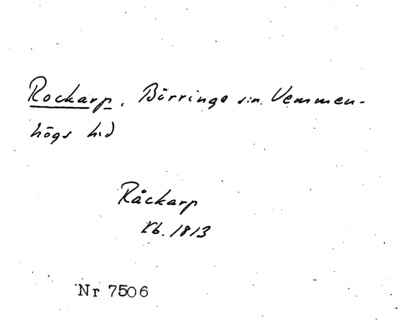 Rockarp, Börringe s:n. Vemmen-
högs hd
Råckarp
Kb. 1813
Nr 7506